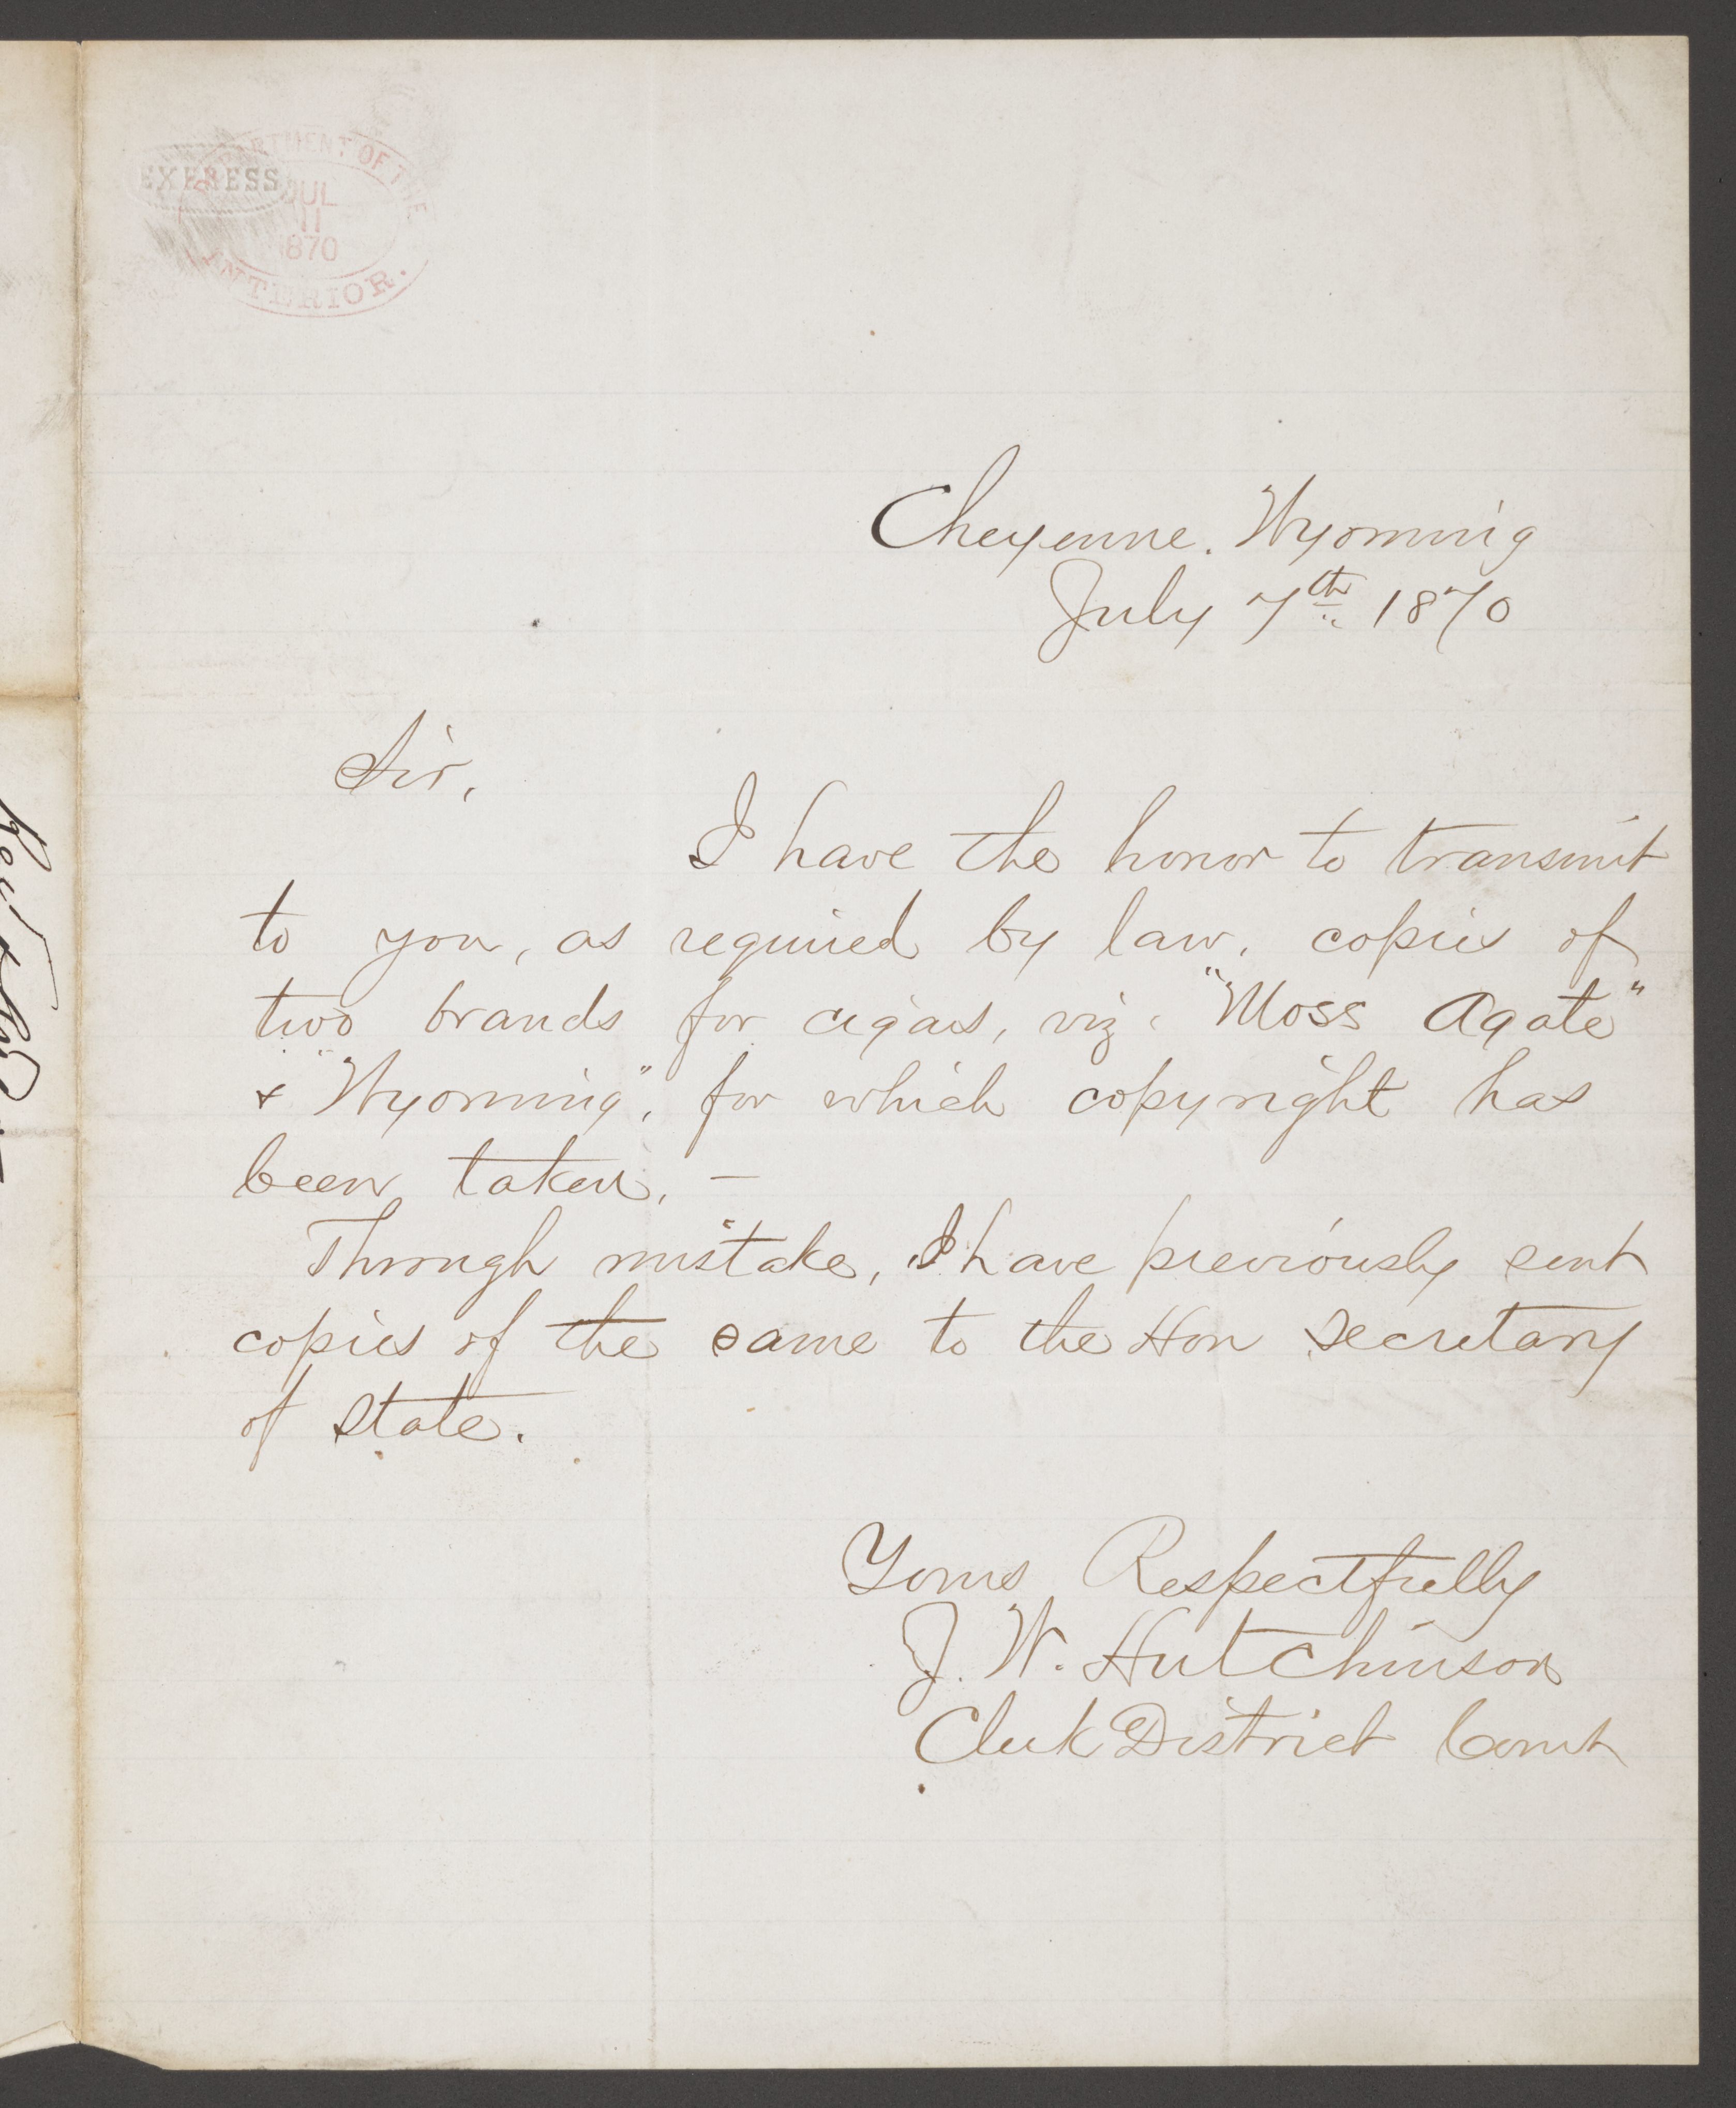 DEPARTMENT OF THE
EXPRESS
JUL
11
1870
INTERIOR.
Cheyenne. Wyoming
July 7th 1870
Sir,
I have the honor to transmit
to you, as required by law, copies of
two brands for cigars, viz. "Moss Agate"
& "Wyoming", for which copyright has
been taken. —
Through mistake, I have previously sent
copies of the same to the Hon Secretary
of State.
Yours Respectfully
J. W. Hutchinson
Clerk District Court